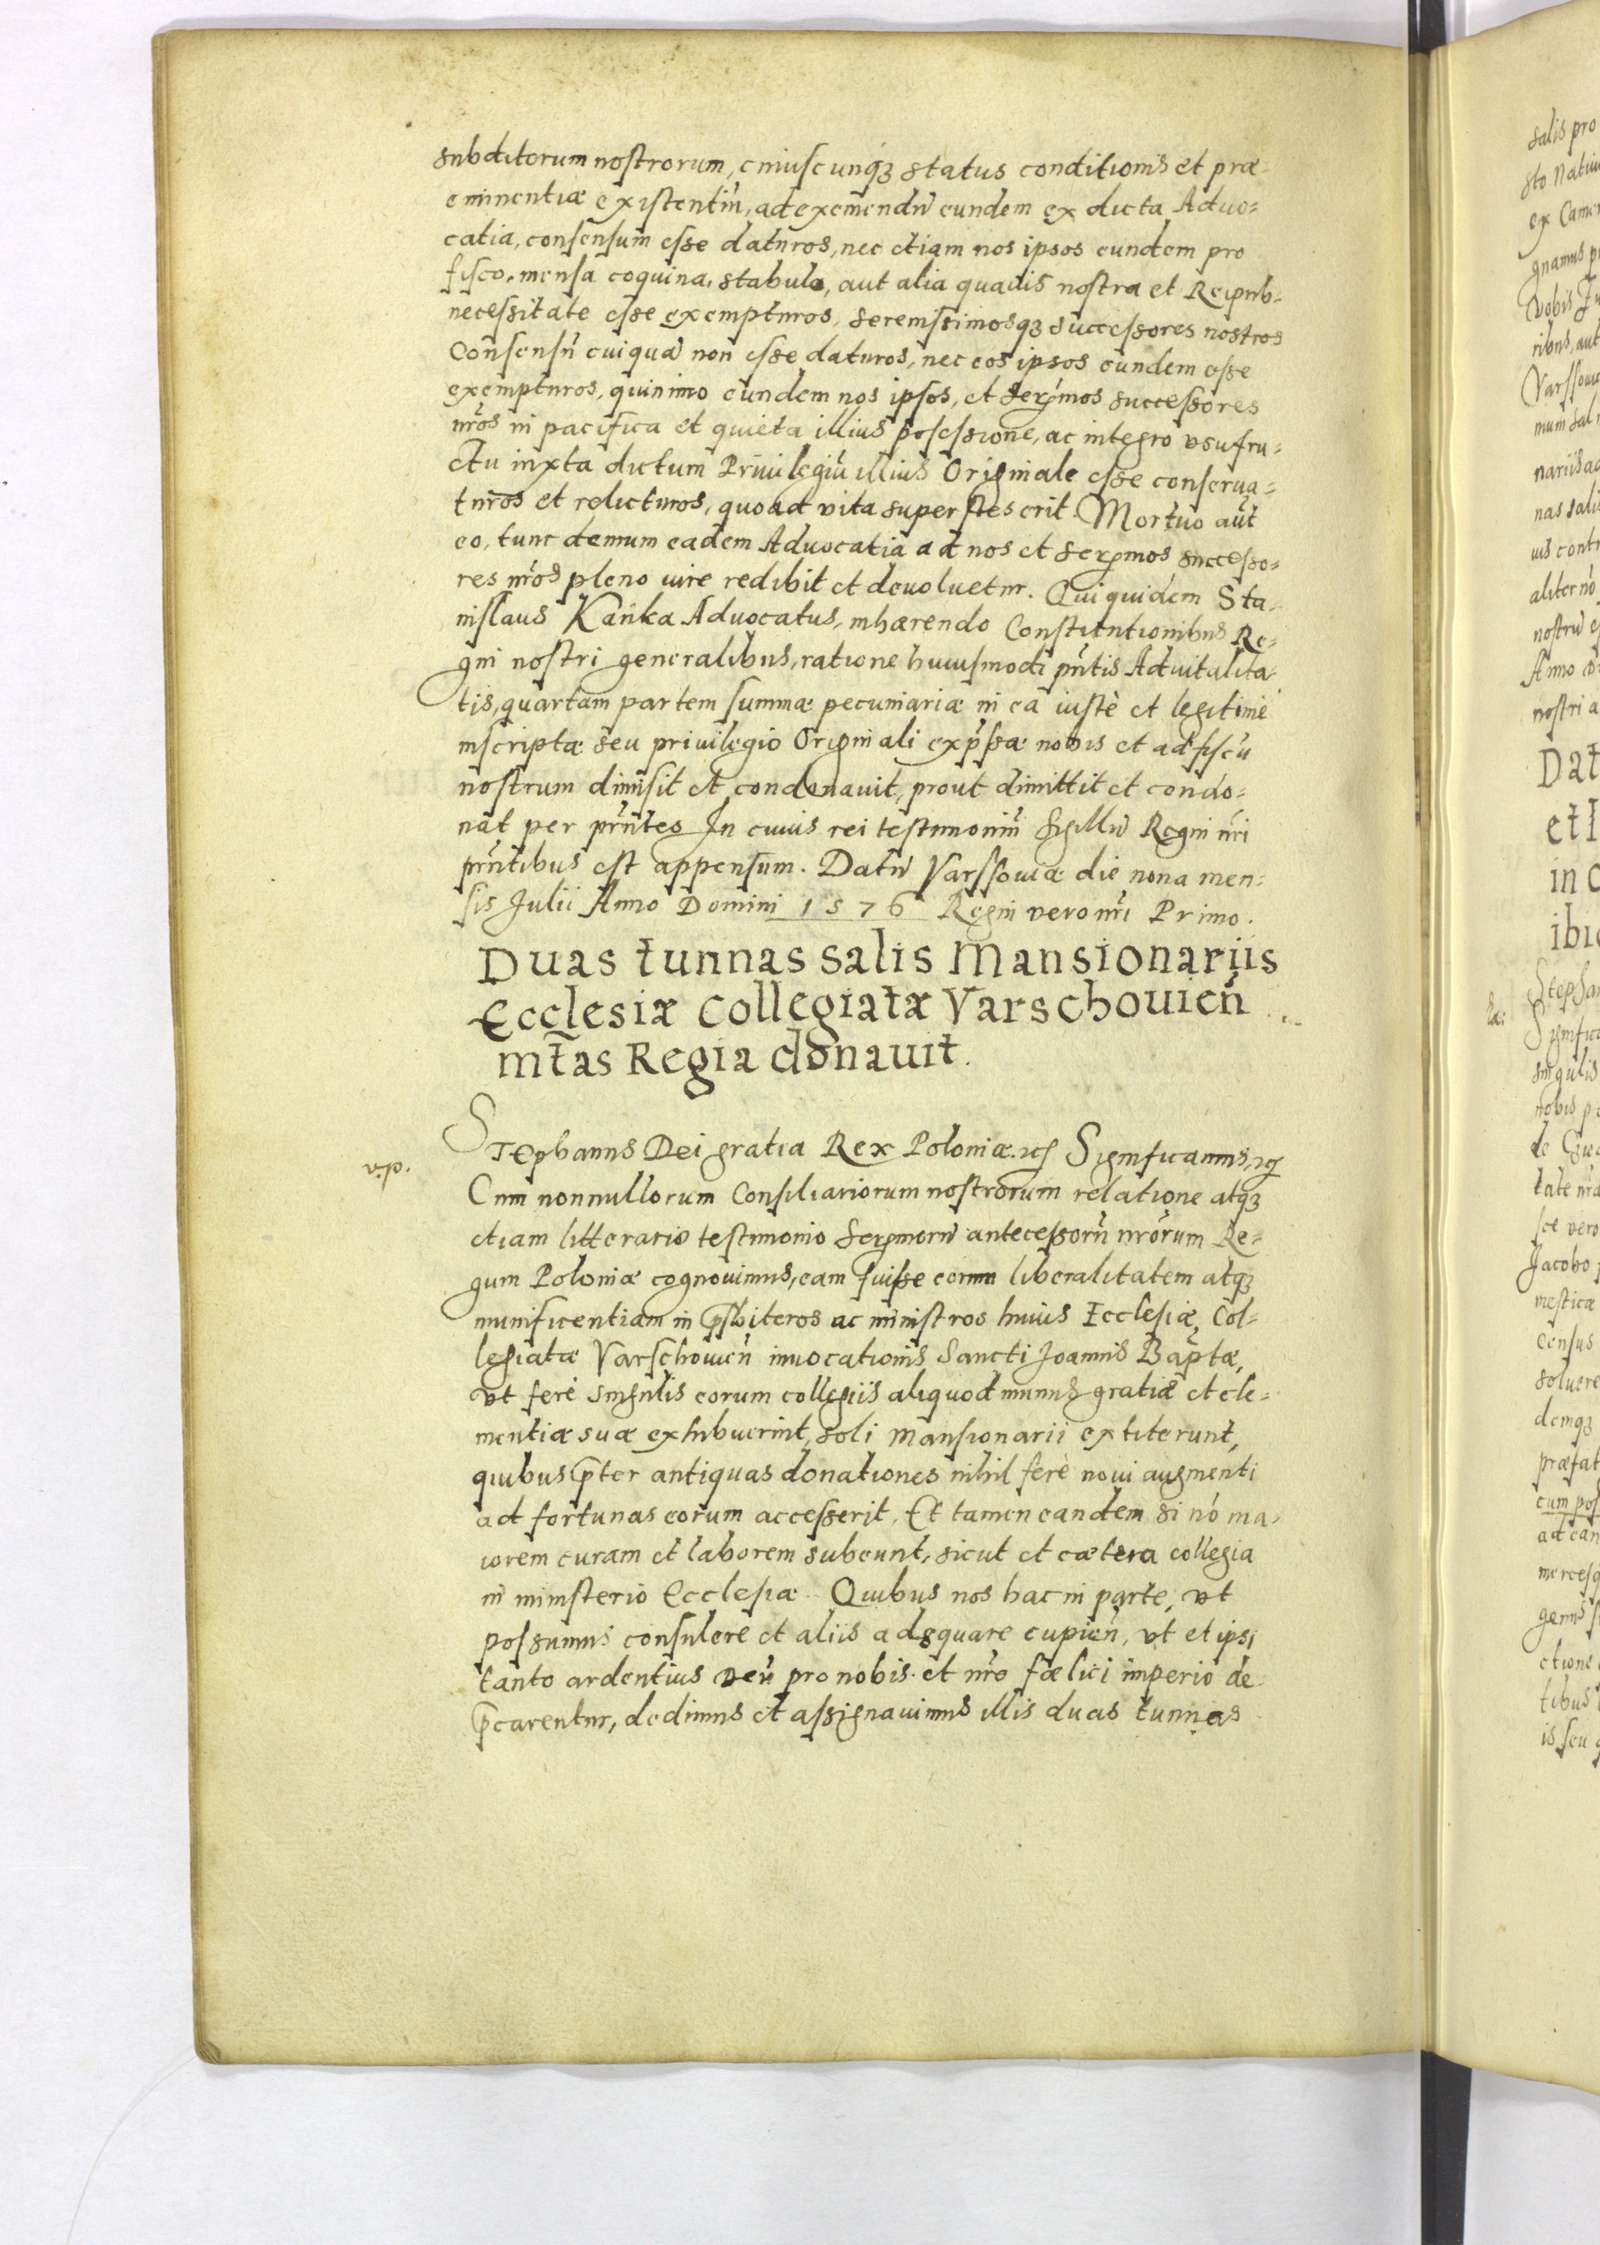 subditorum nostrorum, cuiuscunqꝫ status conditionis et præ-
eminentiæ existentiũ, ad exemendũ eundem ex dicta Aduo=
catia, consensum esse daturos, nec etiam nos ipsos eundem pro
fisco, mensa coquina, stabulo, aut alia quauis nostra et Reipub-
necessitate esse exempturos, serenissimosqꝫ successores nostros
Consensũ cuiquã non esse daturos, nec eos ipsos eundem esse
exempturos, quinimo eundem nos ipsos, et sermos successores
nr̃os in pacifica et quieta illius possessione, ac integro vsufru-
ctu iuxta dictum Priuilegiũ illius Originale esse conserua=
turos et relicturos, quoad vita superstes erit. Mortuo aũt
eo, tunc demum eadem Aduocatia ad nos et sermos successo=
res nr̃os pleno iure redibit et deuoluetur. Qui quidem Sta-
nislaus Kańka Aduocatus, inhærendo Constitutionibus Re=
gni nostri generalibus, ratione huiusmodi pñtis Aduitalita-
tis, quartam partem summæ pecuniariæ in ea iustè et legitimè
inscriptæ seu priuilegio Originali exp̃ssæ nobis et ad fiscũ
nostrum dimisit et condonauit, prout dimittit et condo-
nat per pr̃ntes In cuius rei testimoniũ sigillũ Regni nr̃i
pr̃ntibus est appensum. Datũ Varssouiæ die nona men=
sis Julii Anno Domini 1576 Regni vero nr̃i Primo.
Duas tunnas salis Mansionariis
Ecclesiæ Collegiatæ Varschouieñ
mt̃as Regia donauit.
v.p.
Stephanus Dei gratia Rex Poloniæ. etc Significamus, etc
Cum nonnullorum Consiliariorum nostrorum relatione atqꝫ
etiam litterario testimonio sermorũ antecessorũ nrõrum Re=
gum Poloniæ cognouimus, eam fuisse eorum liberalitatem atqꝫ
munificentiam in p̃sbiteros ac ministros huius Ecclesiæ Col-
legiatæ Varschouieñ inuocationis Sancti Joannis Bap̃tæ,
vt ferè singulis eorum collegiis aliquod munus gratiæ et cle=
mentiæ suæ exhibuerint, soli mansionarii extiterunt,
quibus p̃ter antiquas donationes nihil ferè noui augmenti
ad fortunas eorum accesserit. Et tamen eandem si nõ ma-
iorem curam et laborem subeunt, sicut et cætera collegia
in ministerio Ecclesiæ. Quibus nos hac in parte, vt
possumus consulere et aliis adęquare cupieñ, vt et ipsi
tanto ardentius Deũ pro nobis et nr̃o fœlici imperio de-
p̃carentur, dedimus et assignauimus illis duas tunnas